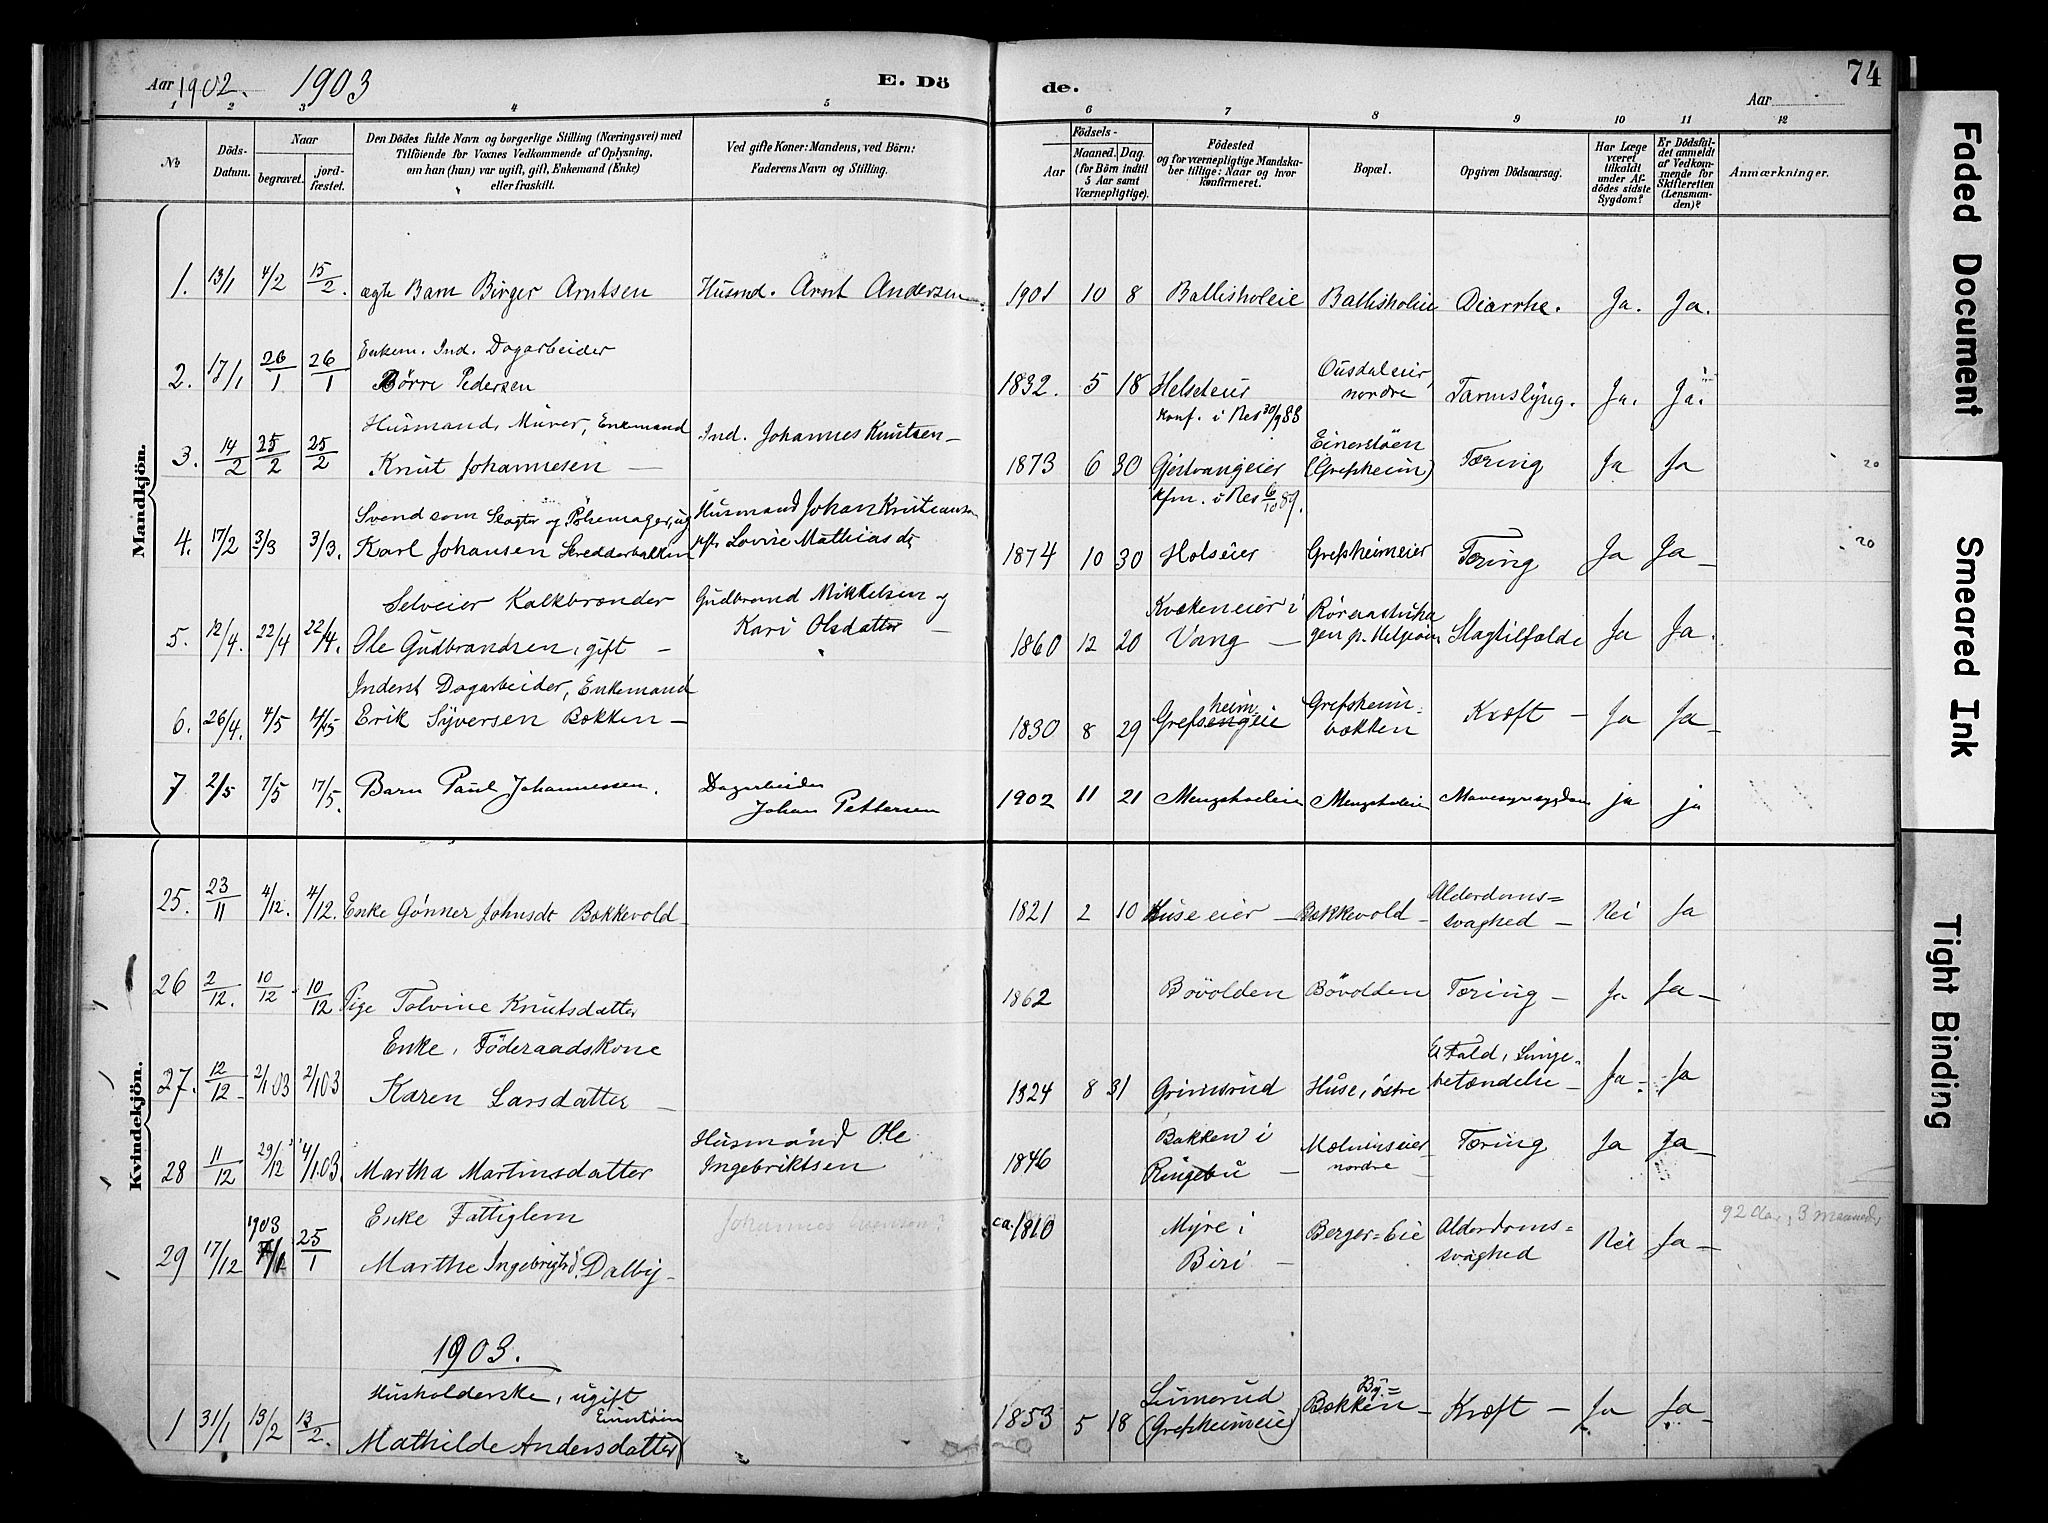 Aar 1902. 1903
E. Dö
de.
Aar
74
1 2 3 4 5 6 7 8 9 10 11 12
No
Döds-Datum.
Naar
begravet.
jord-fæstet.
Den Dödes fulde Navn og borgerlige Stilling (Næringsvei) med
Tilföiende for Voxnes Vedkommende af Oplysning,
om han (hun) var ugift, gift, Enkemand (Enke)
eller fraskilt.
Ved gifte Koner: Mandens, ved Börn:
Faderens Navn og Stilling.
Födsels-
Aar
Maaned. Dag.
(for Börn indtil
5 Aar samt
Værnepligtige).
Födested
og for værnepligtige Mandska-
ber tillige: Naar og hvor
konfirmeret.
Bopæl.
Opgiven Dödsaarsag.
Har Læge
været
tilkaldt
under Af-
dödes sidste
Sygdom?
Er Dödsfal-
det anmeldt
af Vedkom-
mende for
Skifteretten
(Lensman-
den)?
Anmærkninger.
Mandkjön.
1. 13/1 4/2 15/2. ægte Barn Birger Arntsen Husmd. Arnt Andersen 1901 10 8 Ballishøleie Ballishøleie Diarrhe. Ja. Ja.
2. 17/1 26/1 26/1 Enkem. Ind. Dagarbeider
Børre Pedersen 1832. 5 18 Helseteier Ousdaleier, nordre Tarmslyng. Ja. Ja.
3. 14/2 25/2 25/2 Husmand, Murer, Enkemand
Knut Johannesen — Ind. Johannes Knutsen — 1873 6 30 konf. i Nes 30/9 88 Gjøstvangeier Einerstøen (Grefsheim) Tæring Ja Ja 20
4. 17/2 3/3 3/3. Svend som Slagter og Pølsemager, ug
Karl Johansen Skredderbakken Husmand Johan Kristiansen
og Lovise Mathiasdt 1874 10 30 kfm. i Nes 6/10 89. Holseier Grefsheimeier Tæring Ja Ja — 20
5. 12/4. 22/4 22/4. Selveier Kalkbrænder
Ole Gudbrandsen, gift — Gudbrand Mikkelsen og
Kari Olsdatter — 1860 12 20 Kvækeneier i
Vang — Slagtilfælde Ja Ja.
6. 26/4. 4/5 4/5 Inderst Dagarbeider, Enkemand
Erik Syversen Bækken — 1830 8 29 Grefsheimengeie Grefsheim-
bækken Kræft — Ja Ja —
7 2/5 7/5 17/5. Barn Paul Johannessen. Dagarbeider
Johan Pettersen 1902 11 21 Mengsholeie Mengsholeie Mavesyresygdom ja ja
Kvindekjön.
25. 23/11 4/12. 4/12. Enke Gønner Johnsdt Bækkevold — 1821 2 10 Huse eier — Bækkevold — Alderdoms=
svaghed — Nei Ja
26 2/12. 10/12 10/12 Pige Tolvine Knutsdatter 1862 Bøvolden Bøvolden Tæring — Ja Ja —
27. 12/12 2/1 03 2/1 03 Enke, Föderaadskone
Karen Larsdatter — 1824 8 31 Grimsrud Huse, østre Et Fald, Lunge-
betændelse — Ja — Ja
28 11/12 29/12 4/1 03. Martha Martinsdatter Husmand Ole
Ingebriktsen 1846 Bakken i
Ringebu — Mælumseier
nordre Tæring Ja Ja —
29 17/12 1903 25/1 Enke Fattiglem
Marthe Ingebrigtsd. Dalby — Johannes ca. 1810 Myre i
Biri — Berger=Eie Alderdoms=
svaghed Nei Ja — 92 Aar, 3 maaneder
1903.
1 31/1 13/2 13/2. Husholderske, ugift
Mathilde Andersdatter Einstøien 1853 5 18 Limerud
(Grefsheimeie) By=
Bækken — Kræft — Ja Ja —
Faded Document
Smeared Ink
Tight Binding